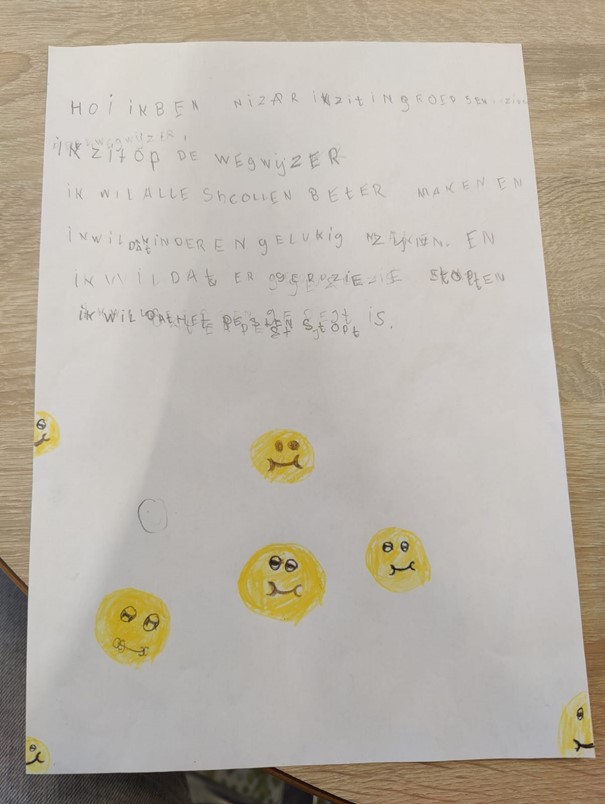 HOI iK BEN NiZAR iK zit iN gROEP 5
iK zit op DE WEgWijZER
iK WiL ALLE ShcOLLEN BEtER MAKEN EN
iK wil dat KiNDEREN gELUKig zijn. EN
iK WiL DAt ER StOPtEN
iK WiL DAt HEt PEStEN StOPt iS.